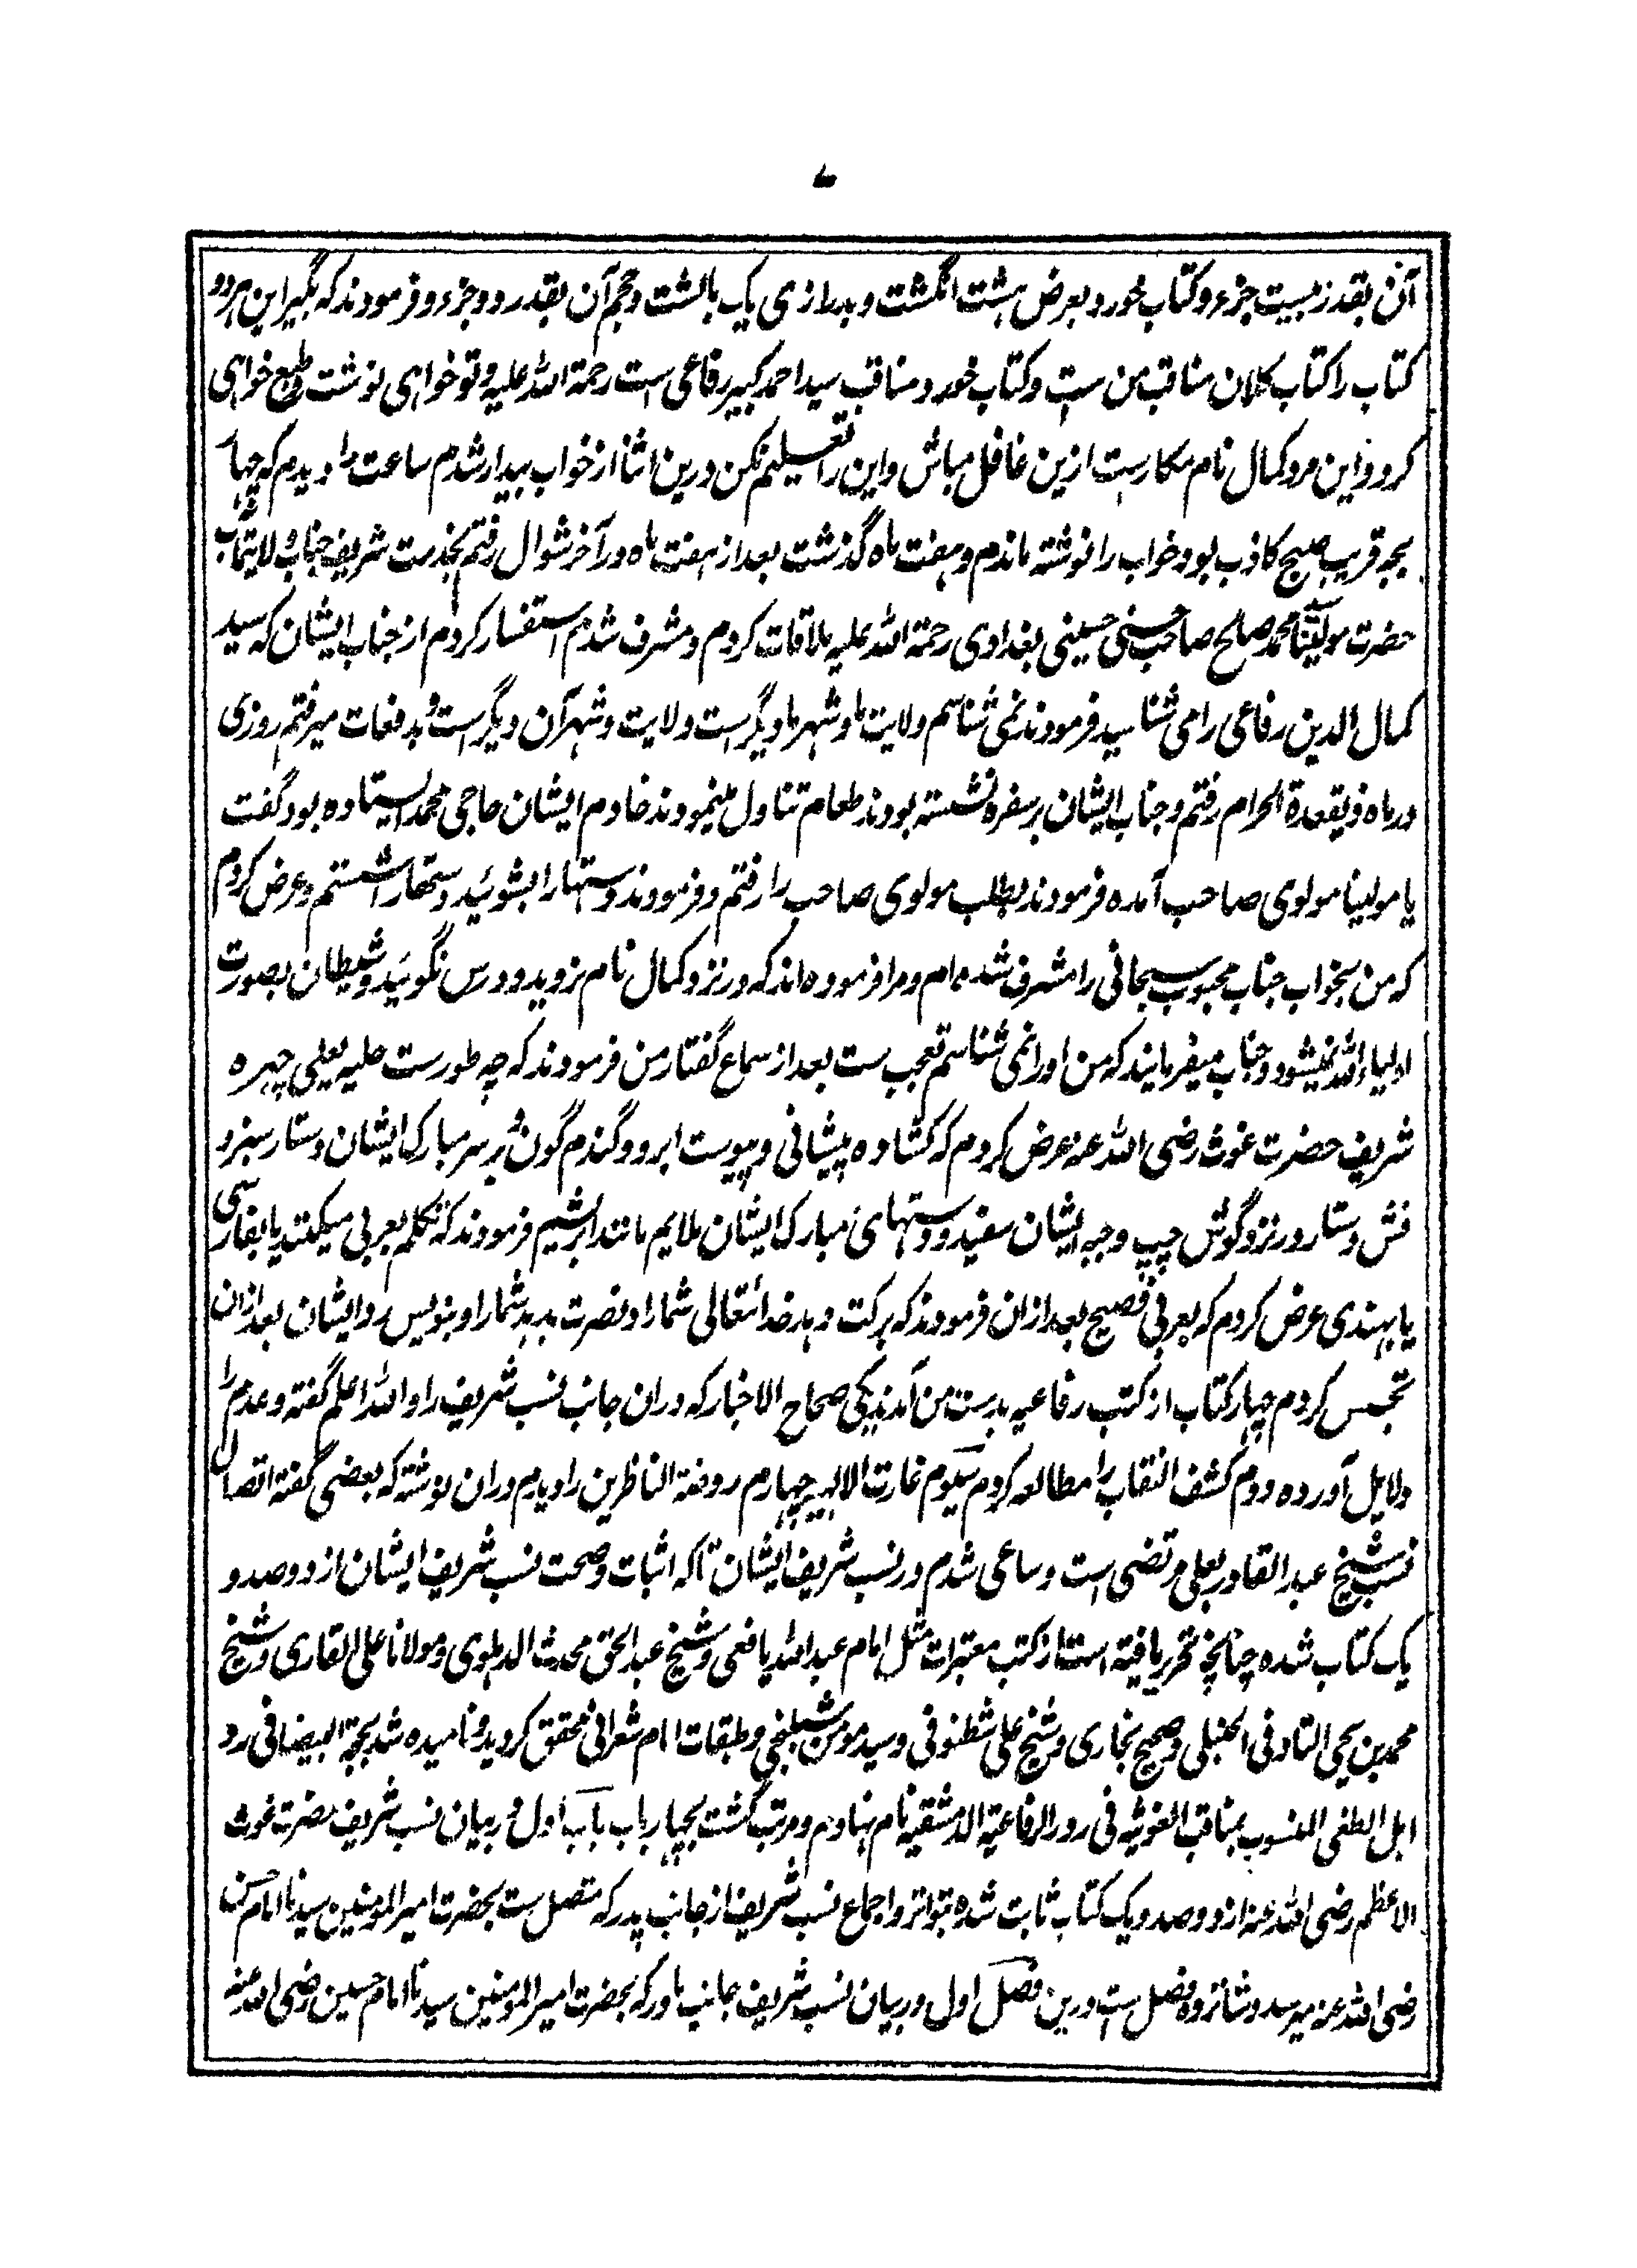 آن بقدر بیست جزء و کتاب خورد بعرض هشت انگشت و بدرازی یک بالشت و حجم آن بقدر دو جزء و فرمودند که بگیر این هر دو
کتاب را کتاب کلان مناقب من ست و کتاب خورد مناقب سید احمد کبیر رفاعی است رحمة الله علیه و تو خواهی نوشت و طبع خواهی
کرد و این مرد کمال نام مکارست ازین غافل مباش و این را تعلیم نکن درین اثنا از خواب بیدار شدم ساعت را دیدم که چهار
بجه قریب صبح کاذب بود و خواب را نوشته ماندم و هفت ماه گذشت بعد از هفت ماه در آخر شوال رفتم بخدمت شریف جناب ولایتمآب
حضرت مولینا محمد صلح صاحب حسنی حسینی بغدادی رحمة الله علیه ملاقات کردم و مشرف شدم استفسار کردم از جناب ایشان که سید
کمال الدین رفاعی را می شناسید فرمودند نمی شناسم ولایت ما و شهر ما دیگر است ولایت و شهر آن دیگر است و بدفعات میرفتم روزی
در ماه ذیقعدة الحرام رفتم و جناب ایشان بر سفره نشسته بودند طعام تناول مینمودند خادم ایشان حاجی محمد ایستاده بود گفت
یا مولینا مولوی صاحب آمده فرمودند بطلب مولوی صاحب را رفتم و فرمودند دستها را بشوئید دستها را شستم و عرض کردم
که من بخواب جناب محبوب سبحانی را مشرف شده ام و مرا فرموده اند که در نزد کمال نام نروید و درس نگوئید و شیطان بصورت
اولیاء الله نمیشود و جناب میفرمایند که من او را نمی شناسم تعجب ست بعد از سماع گفتار من فرمودند که چه طورست حلیه یعنی چهره
شریف حضرت غوث رضی الله عنه عرض کردم که کشاده پیشانی و پیوست ابرو و گندم گون و بر سر مبارک ایشان دستار سبز و
فش دستار در نزد گوش چپ و جبه ایشان سفید و دستهای مبارک ایشان ملایم مانند ابریشم فرمودند که تکلم بعربی میکنند یا بفارسی
یا بهندی عرض کردم که بعربی فصیح بعد ازان فرمودند که برکت دهد خدا تعالی شما را و نصرت بدهد شما را و بنویس رد ایشان بعد ازان
تجسس کردم چهار کتاب از کتب رفاعیه بدست من آمدند یکی صحاح الاخبار که دران جانب نسب شریف را والله اعلم گفته و عدم را
دلایل آورده دوم کشف النقاب را مطالعه کردم سیوم غارت الالهیه چهارم روضة الناظرین را دیدم دران نوشته که بعضی گفته اتصال
نسب شیخ عبد القادر بعلی مرتضی است و ساعی شدم در نسب شریف ایشان تا که اثبات و صحت نسب شریف ایشان از دو صد و
یک کتاب شده چنانچه تحریر یافته است از کتب معتبرات مثل امام عبد الله یافعی و شیخ عبد الحق محدث الدهلوی و مولانا علی القاری و شیخ
محمد بن یحیی التادفی الحنبلی و صحیح بخاری و شیخ علی شطنوفی و سید مومن شبلنجی و طبقات امام شعرانی محقق کردید و نامیده شد بحجة البیضا فی رد
اهل الطغی المنسوب بمناقب الغوثیه فی رد الرفاعیة الدمشقیه نام نهادم و مرتب گشت بچهار باب باب اول در بیان نسب شریف حضرت غوث
الاعظم رضی الله عنه از دو صد و یک کتاب ثابت شده بتواتر و اجماع نسب شریف از جانب پدر که متصل ست بحضرت امیر المومنین سیدنا امام حسن
رضی الله عنه میرسد و شانزده فصل ست درین فصل اول در بیان نسب شریف جانب مادر که بحضرت امیر المومنین سیدنا امام حسین رضی الله عنه